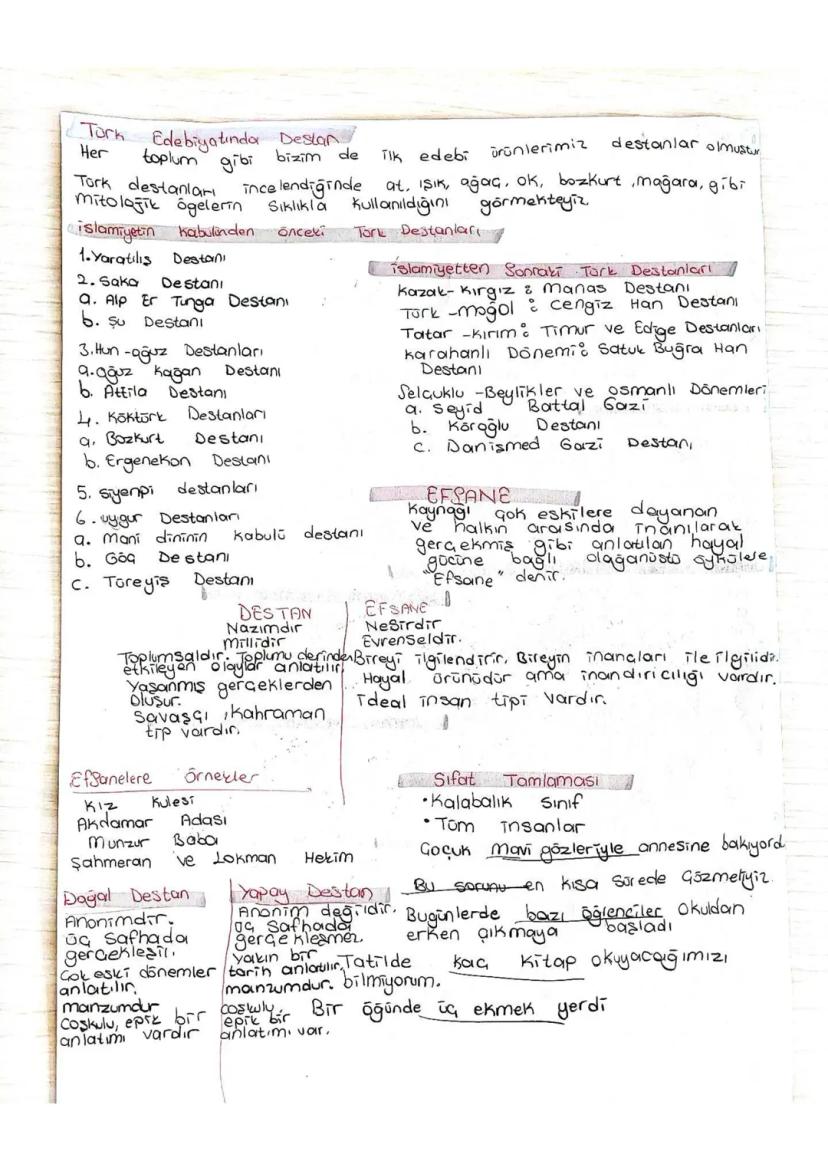 Türk Edebiyatında Destan
Her toplum gibi bizim de ilk edebi ürünlerimiz destanlar olmuştur
Türk destanları incelendiğinde at, ışık, ağaç, ok, bozkurt, mağara, gibi
mitolojik ögelerin sıklıkla kullanıldığını görmekteyiz.
islamiyetin kabulünden önceki Türk Destanları
1.Yaratılış Destanı
2. Saka Destanı
a. Alp Er Tunga Destanı
b. Şu Destanı
3.Hun-oğuz Destanları
a.oğuz kağan Destanı
b. Attila Destanı
4. Köktürk Destanları
a. Bozkurt Destanı
b. Ergenekon Destanı
5. siyenpi destanları
6. uygur Destanları
a. mani dininin kabulü destanı
b. Göç Destanı
c. Türeyiş Destanı
islamiyetten Sonraki Türk Destanları
Kazak-Kırgız : Manas Destanı
Türk-moğol : Cengiz Han Destanı
Tatar-Kırım : Timur ve Edige Destanları
Karahanlı Dönemi : Satuk Buğra Han
Destanı
Selçuklu-Beylikler ve osmanlı Dönemleri
a. Seyid Battal Gazi
b. Köroğlu Destanı
c. Danişmed Gazi Destanı
EFSANE
Kaynağı çok eskilere dayanan
ve halkın arasında inanılarak
gerçekmiş gibi anlatılan hayal
gücüne bağlı olağanüstü öykülere
"Efsane" denir.
DESTAN
Nazımdır
Millidir
Toplumsaldır. Toplumu derinden
etkileyen olaylar anlatılır.
Yaşanmış gerçeklerden
oluşur.
Savaşçı, kahraman
tip vardır.
EFSANE
Nesirdir
Evrenseldir.
Bireyi ilgilendirir. Bireyin inançları ile ilgilidir.
Hayal ürünüdür ama inandırıcılığı vardır.
ideal insan tipi vardır.
Efsanelere örnekler
Kız kulesi
Akdamar Adası
Munzur Baba
Şahmeran ve Lokman Hekim
Doğal Destan
Anonimdir.
üç safhada
gerçekleşir.
Çok eski dönemler
anlatılır.
manzumdur
Coşkulu, epik bir
anlatımı vardır
Yapay Destan
Anonim değildir.
üç safhada
gerçekleşmez.
yakın bir
tarih anlatılır.
manzumdur.
coşkulu,
epik bir
anlatımı var.
Sıfat Tamlaması
•Kalabalık sınıf
•Tüm insanlar
Çocuk mavi gözleriyle annesine bakıyord
Bu sorunu en kısa sürede çözmeliyiz.
Bugünlerde bazı öğrenciler okuldan
erken çıkmaya başladı
Tatilde kaç kitap okuyacağımızı
bilmiyorum.
Bir öğünde üç ekmek yerdi